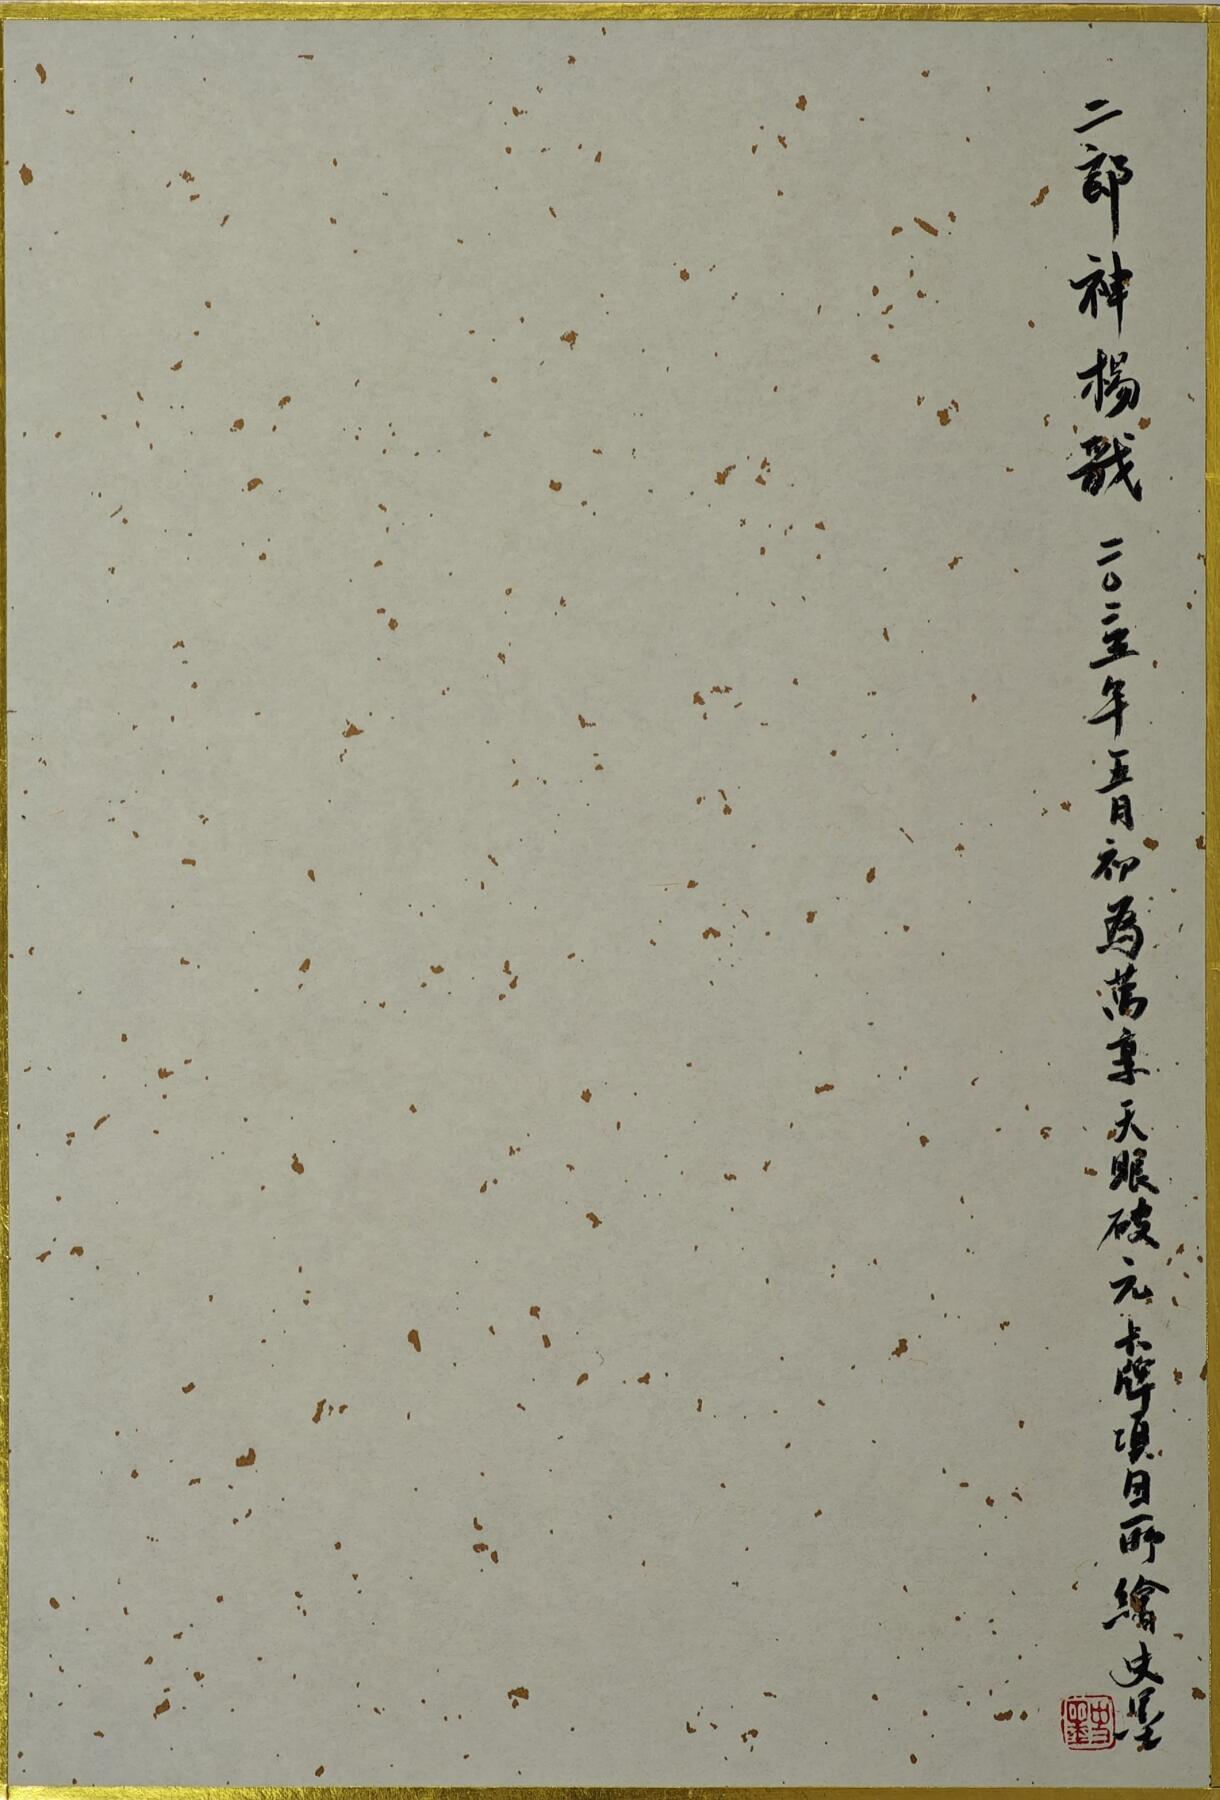 二郎神楊戩 二〇二五年五月初為萬享天眼破元卡牌項目所繪史墨
史墨